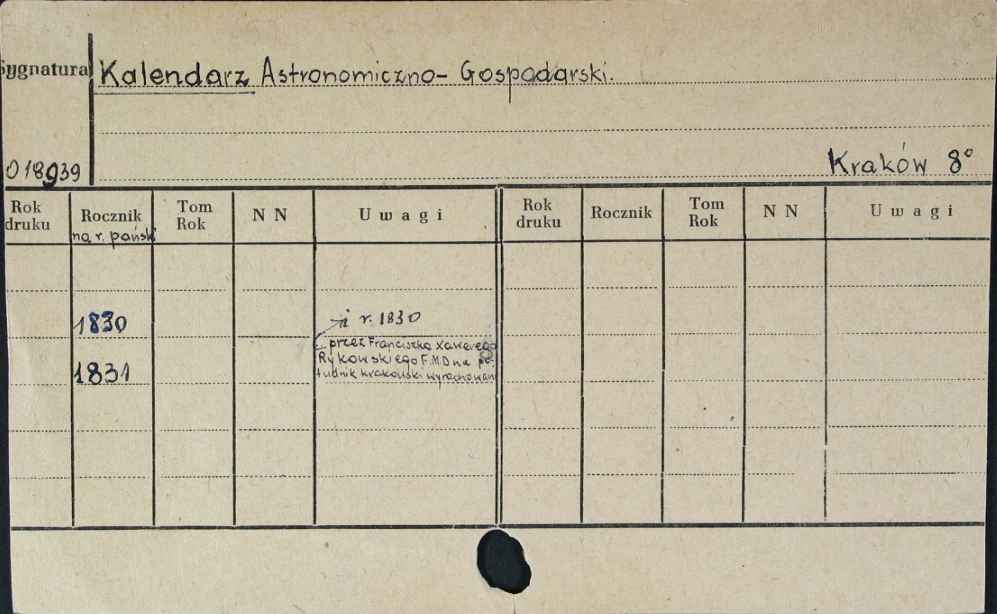 Sygnatura Kalendarz Astronomiczno-Gospodarski.
018939 Kraków 8°
Rok druku Rocznik Tom Rok NN Uwagi Rok druku Rocznik Tom Rok NN Uwagi
na r. pański
1830 i r. 1830
przez Franciszka Xawerego
Rykowskiego F.M.D na po-
1831 łudnik krakowski wyrachowan